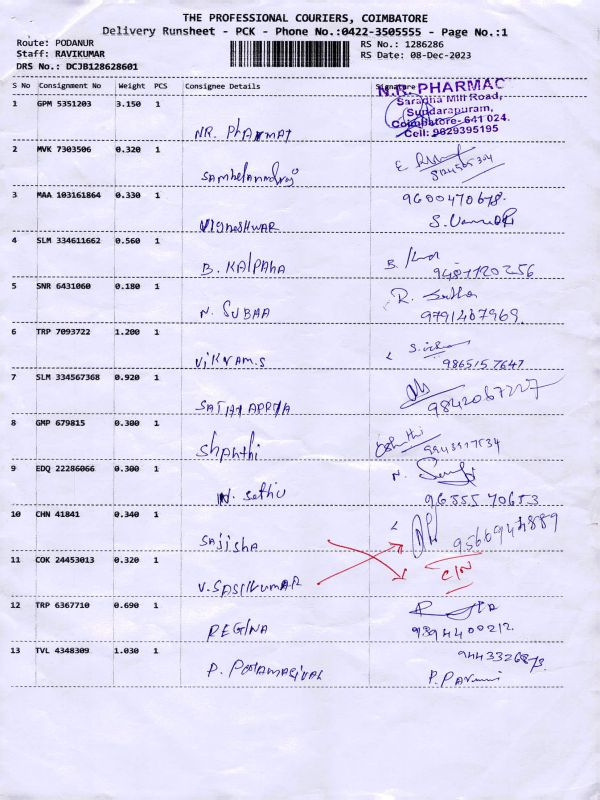 THE PROFESSIONAL COURIERS, COIMBATORE
Delivery Runsheet - PCK - Phone No.:0422-3505555 - Page No.:1
Route: PODANUR
RS No.: 1286286
Staff: RAVIKUMAR
RS Date: 08-Dec-2023
DRS No.: DCJB128628601
S No Consignment No Weight PCS Consignee Details Signature
N.R. PHARMAC
Saradha Mill Road,
Sundarapuram,
Coimbatore-641 024.
Cell: 9829395195
1 GPM 5351203 3.150 1
NR.
2 MVK 7303506 0.320 1
E.
3 MAA 103161864 0.330 1
9600470678.
VIGNESHWAR
S.
4 SLM 334611662 0.560 1
B. KALPANA
B.
9487720256
5 SNR 6431060 0.180 1
N. SUBAA
R.
9791467969.
6 TRP 7093722 1.200 1
VIKRAM.S
9865157647
7 SLM 334567368 0.920 1
9842067227
8 GMP 679815 0.300 1
Shanthi
9 EDQ 22286066 0.300 1
N. Sethu
N.
9655570653
10 CHN 41841 0.340 1
Sajisha
9566944889
11 COK 24453013 0.320 1
C/N
V. SASIKUMAR
12 TRP 6367710 0.690 1
REGINA
9394400212.
13 TVL 4348309 1.030 1
P.
P.